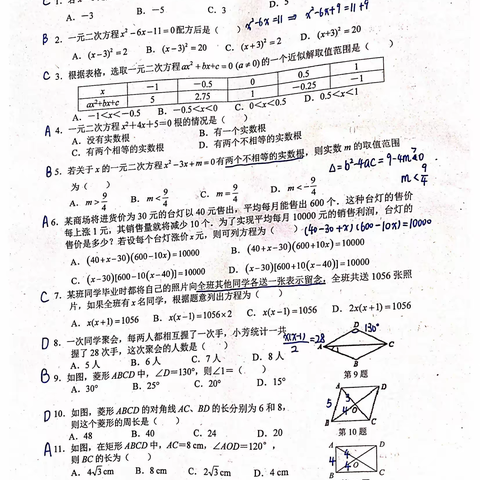 A. −3 B. −5 C. 3
B 2. 一元二次方程x²−6x−11=0配方后是( ) x²-6x=11 ⇒ x²-6x+9=11+9
A. (x−3)²=2 B. (x−3)²=20 C. (x+3)²=2 D. (x+3)²=20
C 3. 根据表格,选取一元二次方程ax²+bx+c=0 (a≠0)的一个近似解取值范围是( )
x −1 −0.5 0 0.5 1
ax²+bx+c 5 2.75 1 −0.25 −1
A. −1<x<−0.5 B. −0.5<x<0 C. 0<x<0.5 D. 0.5<x<1
A 4. 一元二次方程x²+4x+5=0根的情况是( )
A. 没有实数根 B. 有一个实数根
C. 有两个相等的实数根 D. 有两个不相等的实数根
B 5. 若关于x的一元二次方程x²−3x+m=0有两个不相等的实数根,则实数m的取值范围
为( ) Δ=b²-4ac=9-4m>0
A. m>9/4 B. m<9/4 C. m=9/4 D. m<−9/4 m<9/4
A 6. 某商场将进货价为30元的台灯以40元售出,平均每月能售出600个.这种台灯的售价
每上涨1元,其销售量就将减少10个.为了实现平均每月10000元的销售利润,台灯的
售价是多少?若设每个台灯涨价x元,则可列方程为( ) (40-30+x)(600-10x)=10000
A. (40+x−30)(600−10x)=10000 B. (40+x−30)(600+10x)=10000
C. (x−30)[600−10(x−40)]=10000 D. (x−30)[600+10(x−40)]=10000
C 7. 某班同学毕业时都将自己的照片向全班其他同学各送一张表示留念,全班共送1056张照
片,如果全班有x名同学,根据题意列出方程为( )
A. x(x+1)=1056 B. x(x−1)=1056×2 C. x(x−1)=1056 D. 2x(x+1)=1056
D 8. 一次同学聚会,每两人都相互握了一次手,小芳统计一共 x(x-1)/2=28
握了28次手,这次聚会的人数是( )
A. 5人 B. 6人 C. 7人 D. 8人
D 130°
A 1 C
B
第9题
B 9. 如图,菱形ABCD中,∠D=130°,则∠1=( )
A. 30° B. 25° C. 20° D. 15°
D 10. 如图,菱形ABCD的对角线AC、BD的长分别为6和8,
则这个菱形的周长是( )
A. 48 B. 40 C. 24 D. 20
A D
5 3
4 O
B C
第10题
A 11. 如图,在矩形ABCD中,AC=8cm,∠AOD=120°,
则BC的长为( )
A. 4√3cm B. 8cm C. 2√3cm D. 4cm
A D
4
4 O
B C